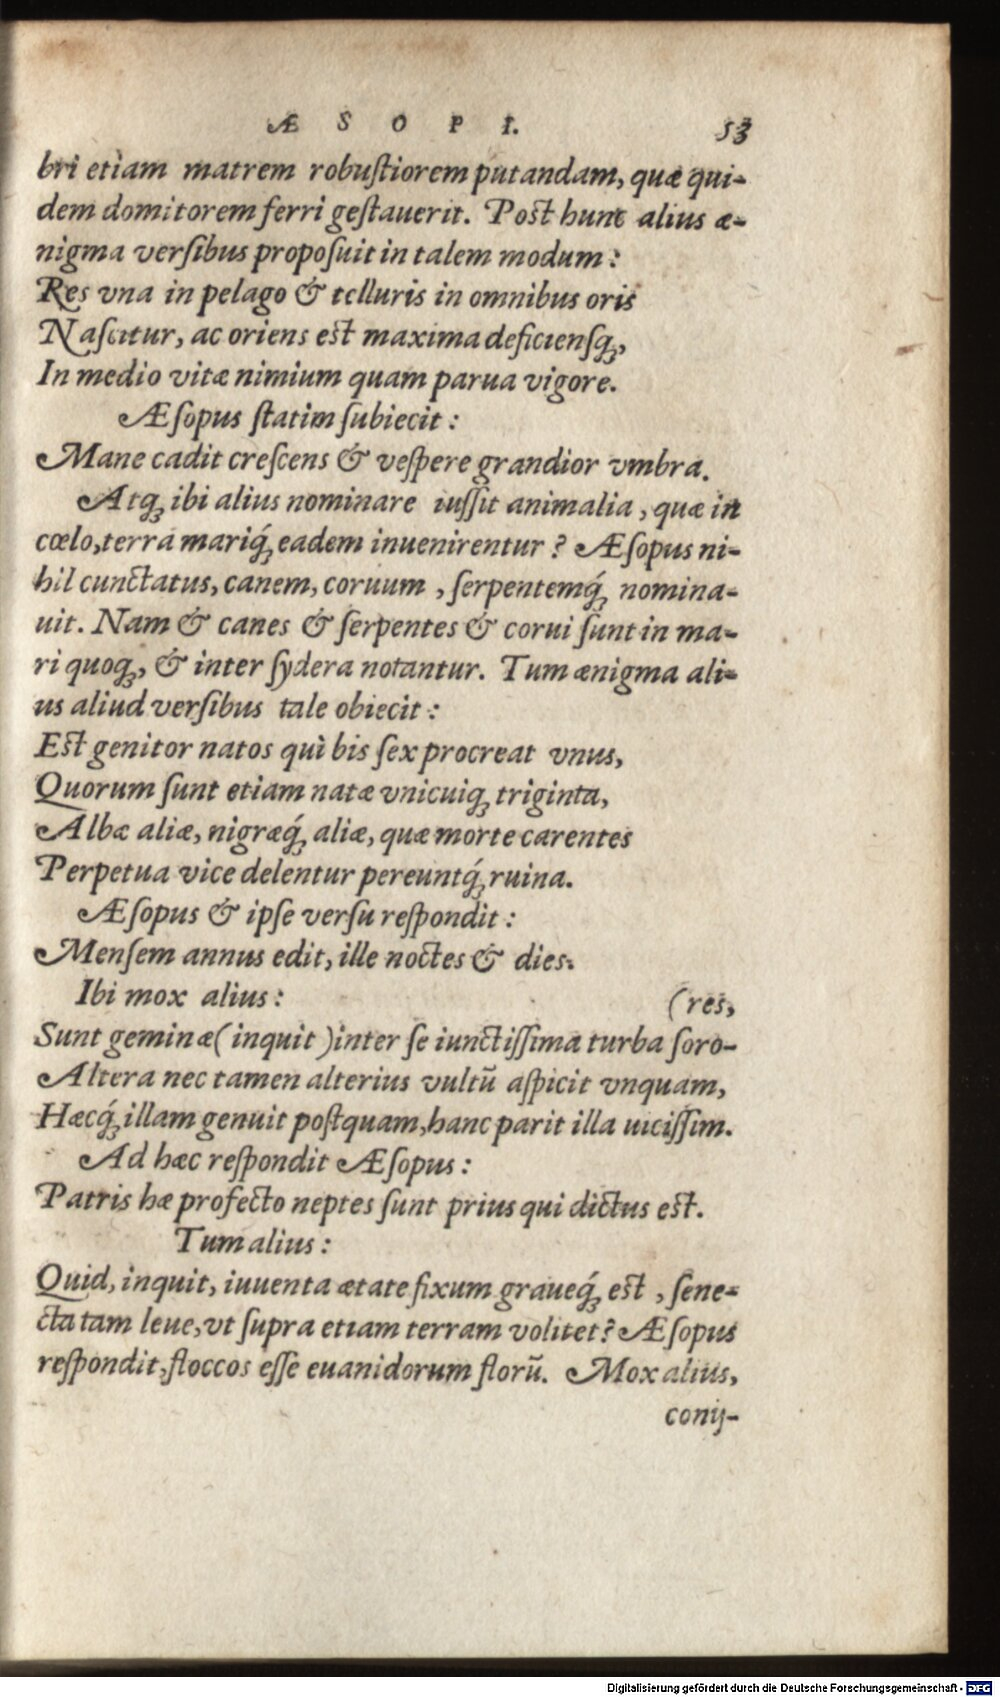 ÆSOPI. 53
bri etiam matrem robuſtiorem putandam, quæ qui-
dem domitorem ferri geſtauerit. Poſt hunc alius æ-
nigma verſibus propoſuit in talem modum:
Res vna in pelago & telluris in omnibus oris
Naſcitur, ac oriens eſt maxima deficienſq́,
In medio vitæ nimium quam parua vigore.
Æſopus ſtatim ſubiecit:
Mane cadit creſcens & veſpere grandior vmbra.
Atq́ ibi alius nominare iuſſit animalia, quæ in
cœlo, terra mariq́, eadem inuenirentur? Æſopus ni-
hil cunctatus, canem, coruum, ſerpentemq́, nomina-
uit. Nam & canes & ſerpentes & corui ſunt in ma-
ri quoq, & inter ſydera notantur. Tum ænigma ali-
us aliud verſibus tale obiecit:
Eſt genitor natos quì bis ſex procreat vnus,
Quorum ſunt etiam natæ vnicuiq, triginta,
Albæ aliæ, nigræq́, aliæ, quæ morte carentes
Perpetua vice delentur pereuntq́, ruina.
Æſopus & ipſe verſu reſpondit:
Menſem annus edit, ille noctes & dies.
Ibi mox alius: (res,
Sunt geminæ (inquit) inter ſe iunctiſſima turba ſoro-
Altera nec tamen alterius vultū aſpicit vnquam,
Hæcq́, illam genuit poſtquam, hanc parit illa uiciſſim.
Ad hæc reſpondit Æſopus:
Patris hæ profecto neptes ſunt prius qui dictus eſt.
Tum alius:
Quid, inquit, iuuenta ætate fixum graueq́, eſt, ſene-
cta tam leue, vt ſupra etiam terram volitet? Æſopus
reſpondit, floccos eſſe euanidorum florū. Mox alius,
conij-
Digitalisierung gefördert durch die Deutsche Forschungsgemeinschaft - DFG